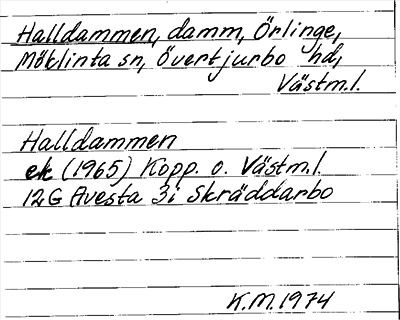 Halldammen, damm, Örlinge,
Möklinta sn, Övertjurbo hd,
Västm.l.
Halldammen
ek (1965) Kopp. o. Västm.l.
12G Avesta 3i Skräddarbo
K.M.1974